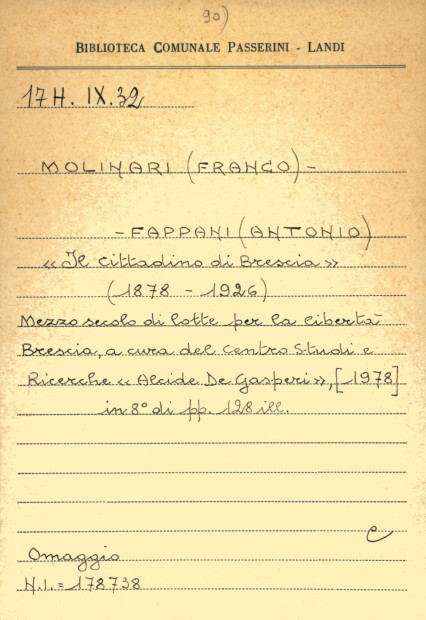 90)
BIBLIOTECA COMUNALE PASSERINI - LANDI
17H. IX.32
MOLINARI (FRANCO) -
- FAPPANI (ANTONIO)
« Il Cittadino di Brescia »
(1878 - 1926)
Mezzo secolo di lotte per la libertà
Brescia, a cura del Centro Studi e
Ricerche « Alcide De Gasperi », [1978]
in 8° di pp. 128 ill.
e
Omaggio
N.I. = 178738